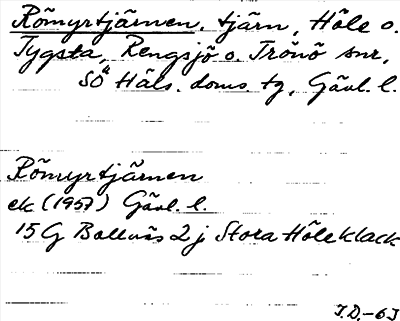 Römyrtjärnen, tjärn, Höle o.
Tygsta, Rengsjö o. Trönö snr,
SÖ Häls. doms. tg, Gävl. l.
Römyrtjärnen
ek (1957) Gävl. l.
15 G Bollnäs 2 j Stora Höleklack
J.D.-63